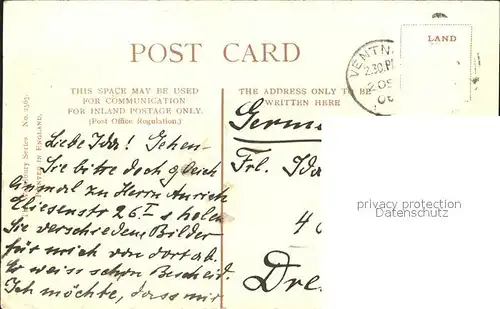 POST CARD
LAND
VENTN
2.30.P
OC
06
THIS SPACE MAY BE USED
FOR COMMUNICATION
FOR INLAND POSTAGE ONLY.
(Post Office Regulation.)
THE ADDRESS ONLY TO BE
WRITTEN HERE
Series No. 2363.
PRINTED IN ENGLAND.
Liebe Ida! Gehen
Sie bitte doch gleich
einmal zu Herrn Anrich
Eliesenstr 26 I & holen
Sie verschiedene Bilder
für mich von dort ab.
Er weiss schon Bescheid.
Ich möchte, dass mir
Germ
Frl. Ida
4
Dre
privacy protection
Datenschutz